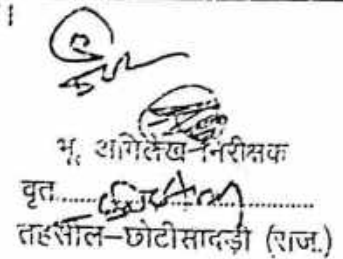 भू. अभिलेख निरीक्षक
वृत
तहसील-छोटीसादड़ी (राज.)